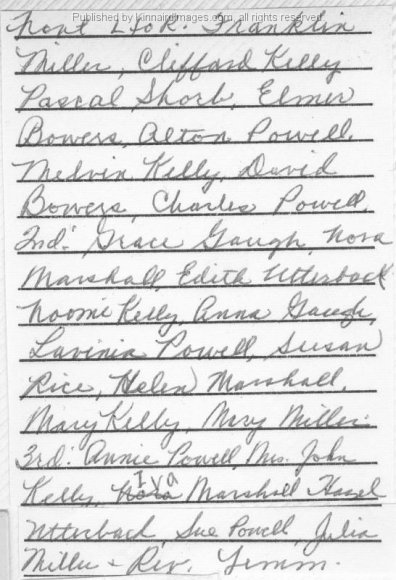 Published by Kinnairdimages.com, all rights reserved.
Front L to R. Franklin
Miller, Clifford Kelly
Pascal Shorb, Elmer
Bowers, Alton Powell.
Melvin Kelly, David
Bowers, Charles Powell
2nd. Grace Gaugh, Nora
Marshall, Edith Utterback
Noomi Kelly, Anna Gaugh,
Lavinia Powell, Susan
Rice, Helen Marshall,
Mary Kelly, Mary Miller.
3rd. Annie Powell, Mrs. John
Iva
Kelly, Nora Marshall Hazel
Utterback, Sue Powell, Julia
Miller + Rev. Timm.